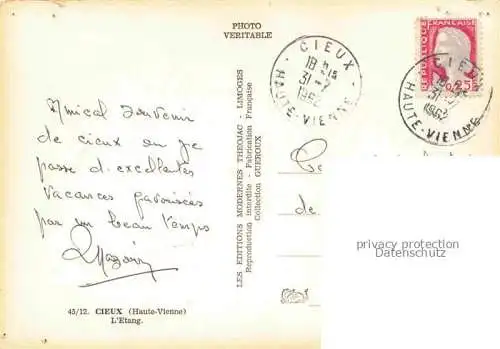 PHOTO
VERITABLE
CIEUX
18 H 15
31-7
1962
HAUTE-VIENNE
REPUBLIQUE FRANÇAISE
0,25
CIEUX
31-7
1962
HAUTE-VIENNE
Amical Souvenir
de cieux où je
passe d'excellentes
vacances favorisées
par un beau temps
LES EDITIONS MODERNES THEOJAC - LIMOGES
Reproduction interdite - Fabrication Française
Collection GUEROUX
de
privacy protection
Datenschutz
45/12. CIEUX (Haute-Vienne)
L'Etang.